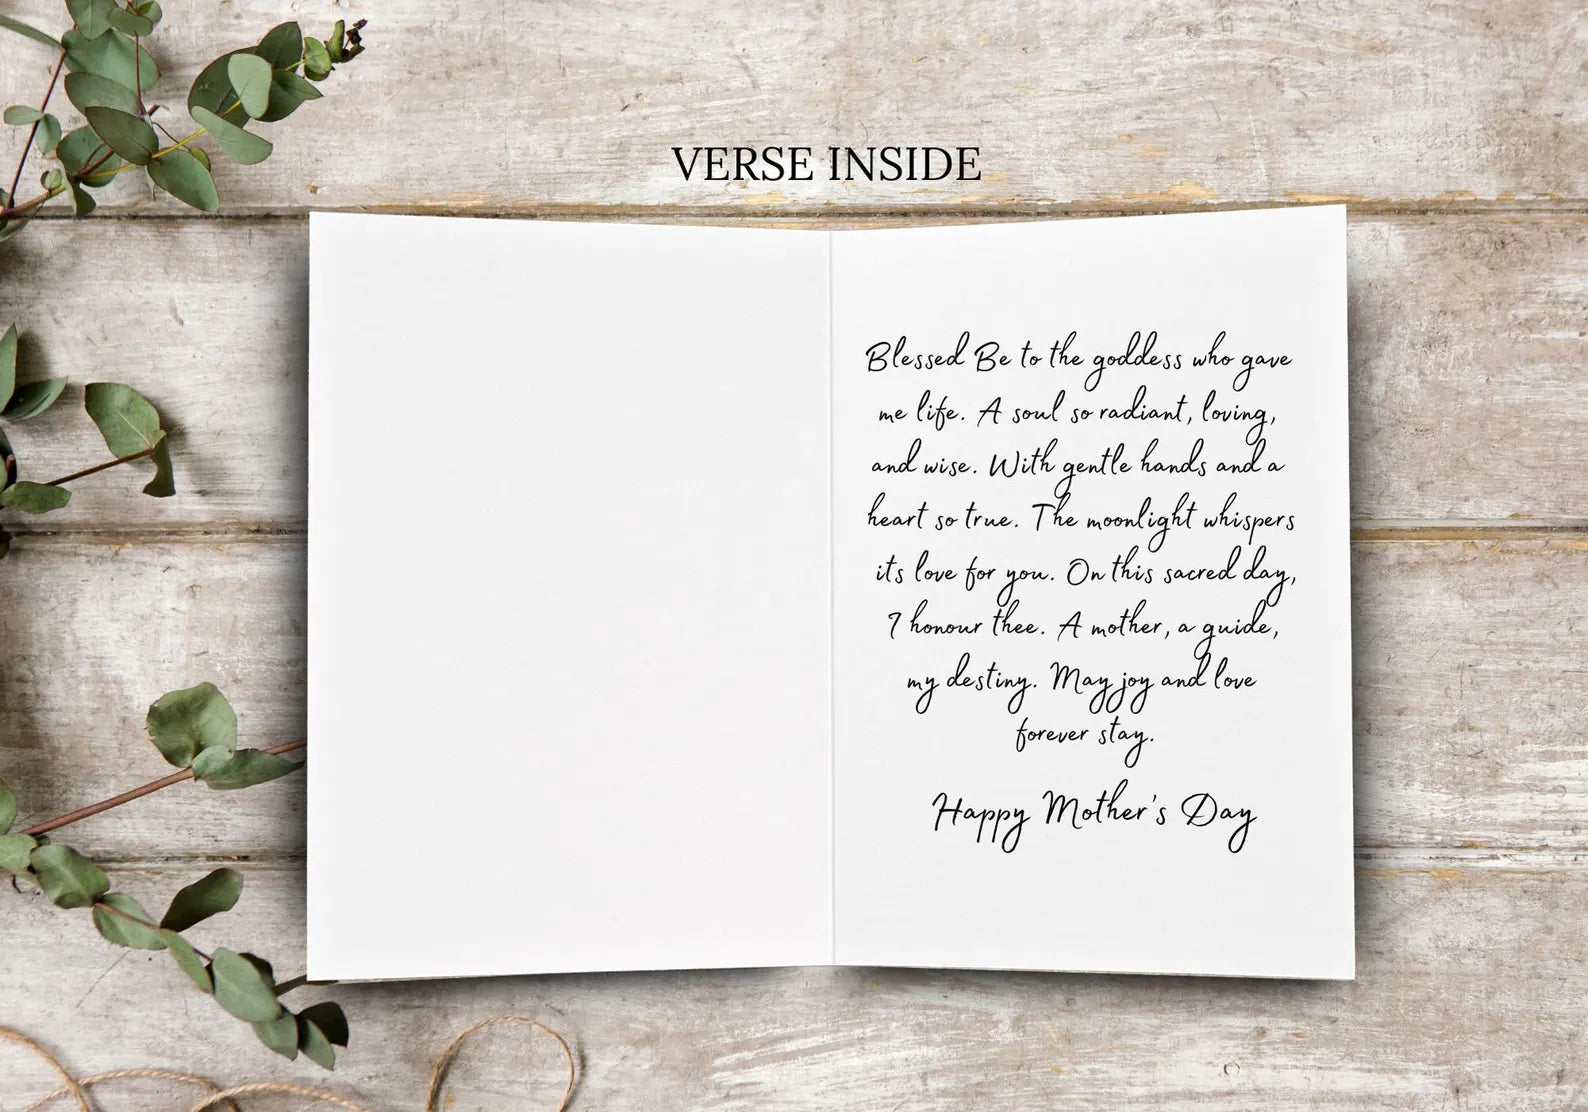 VERSE INSIDE
Blessed Be to the goddess who gave
me life. A soul so radiant, loving,
and wise. With gentle hands and a
heart so true. The moonlight whispers
its love for you. On this sacred day,
I honour thee. A mother, a guide,
my destiny. May joy and love
forever stay.
Happy Mother's Day